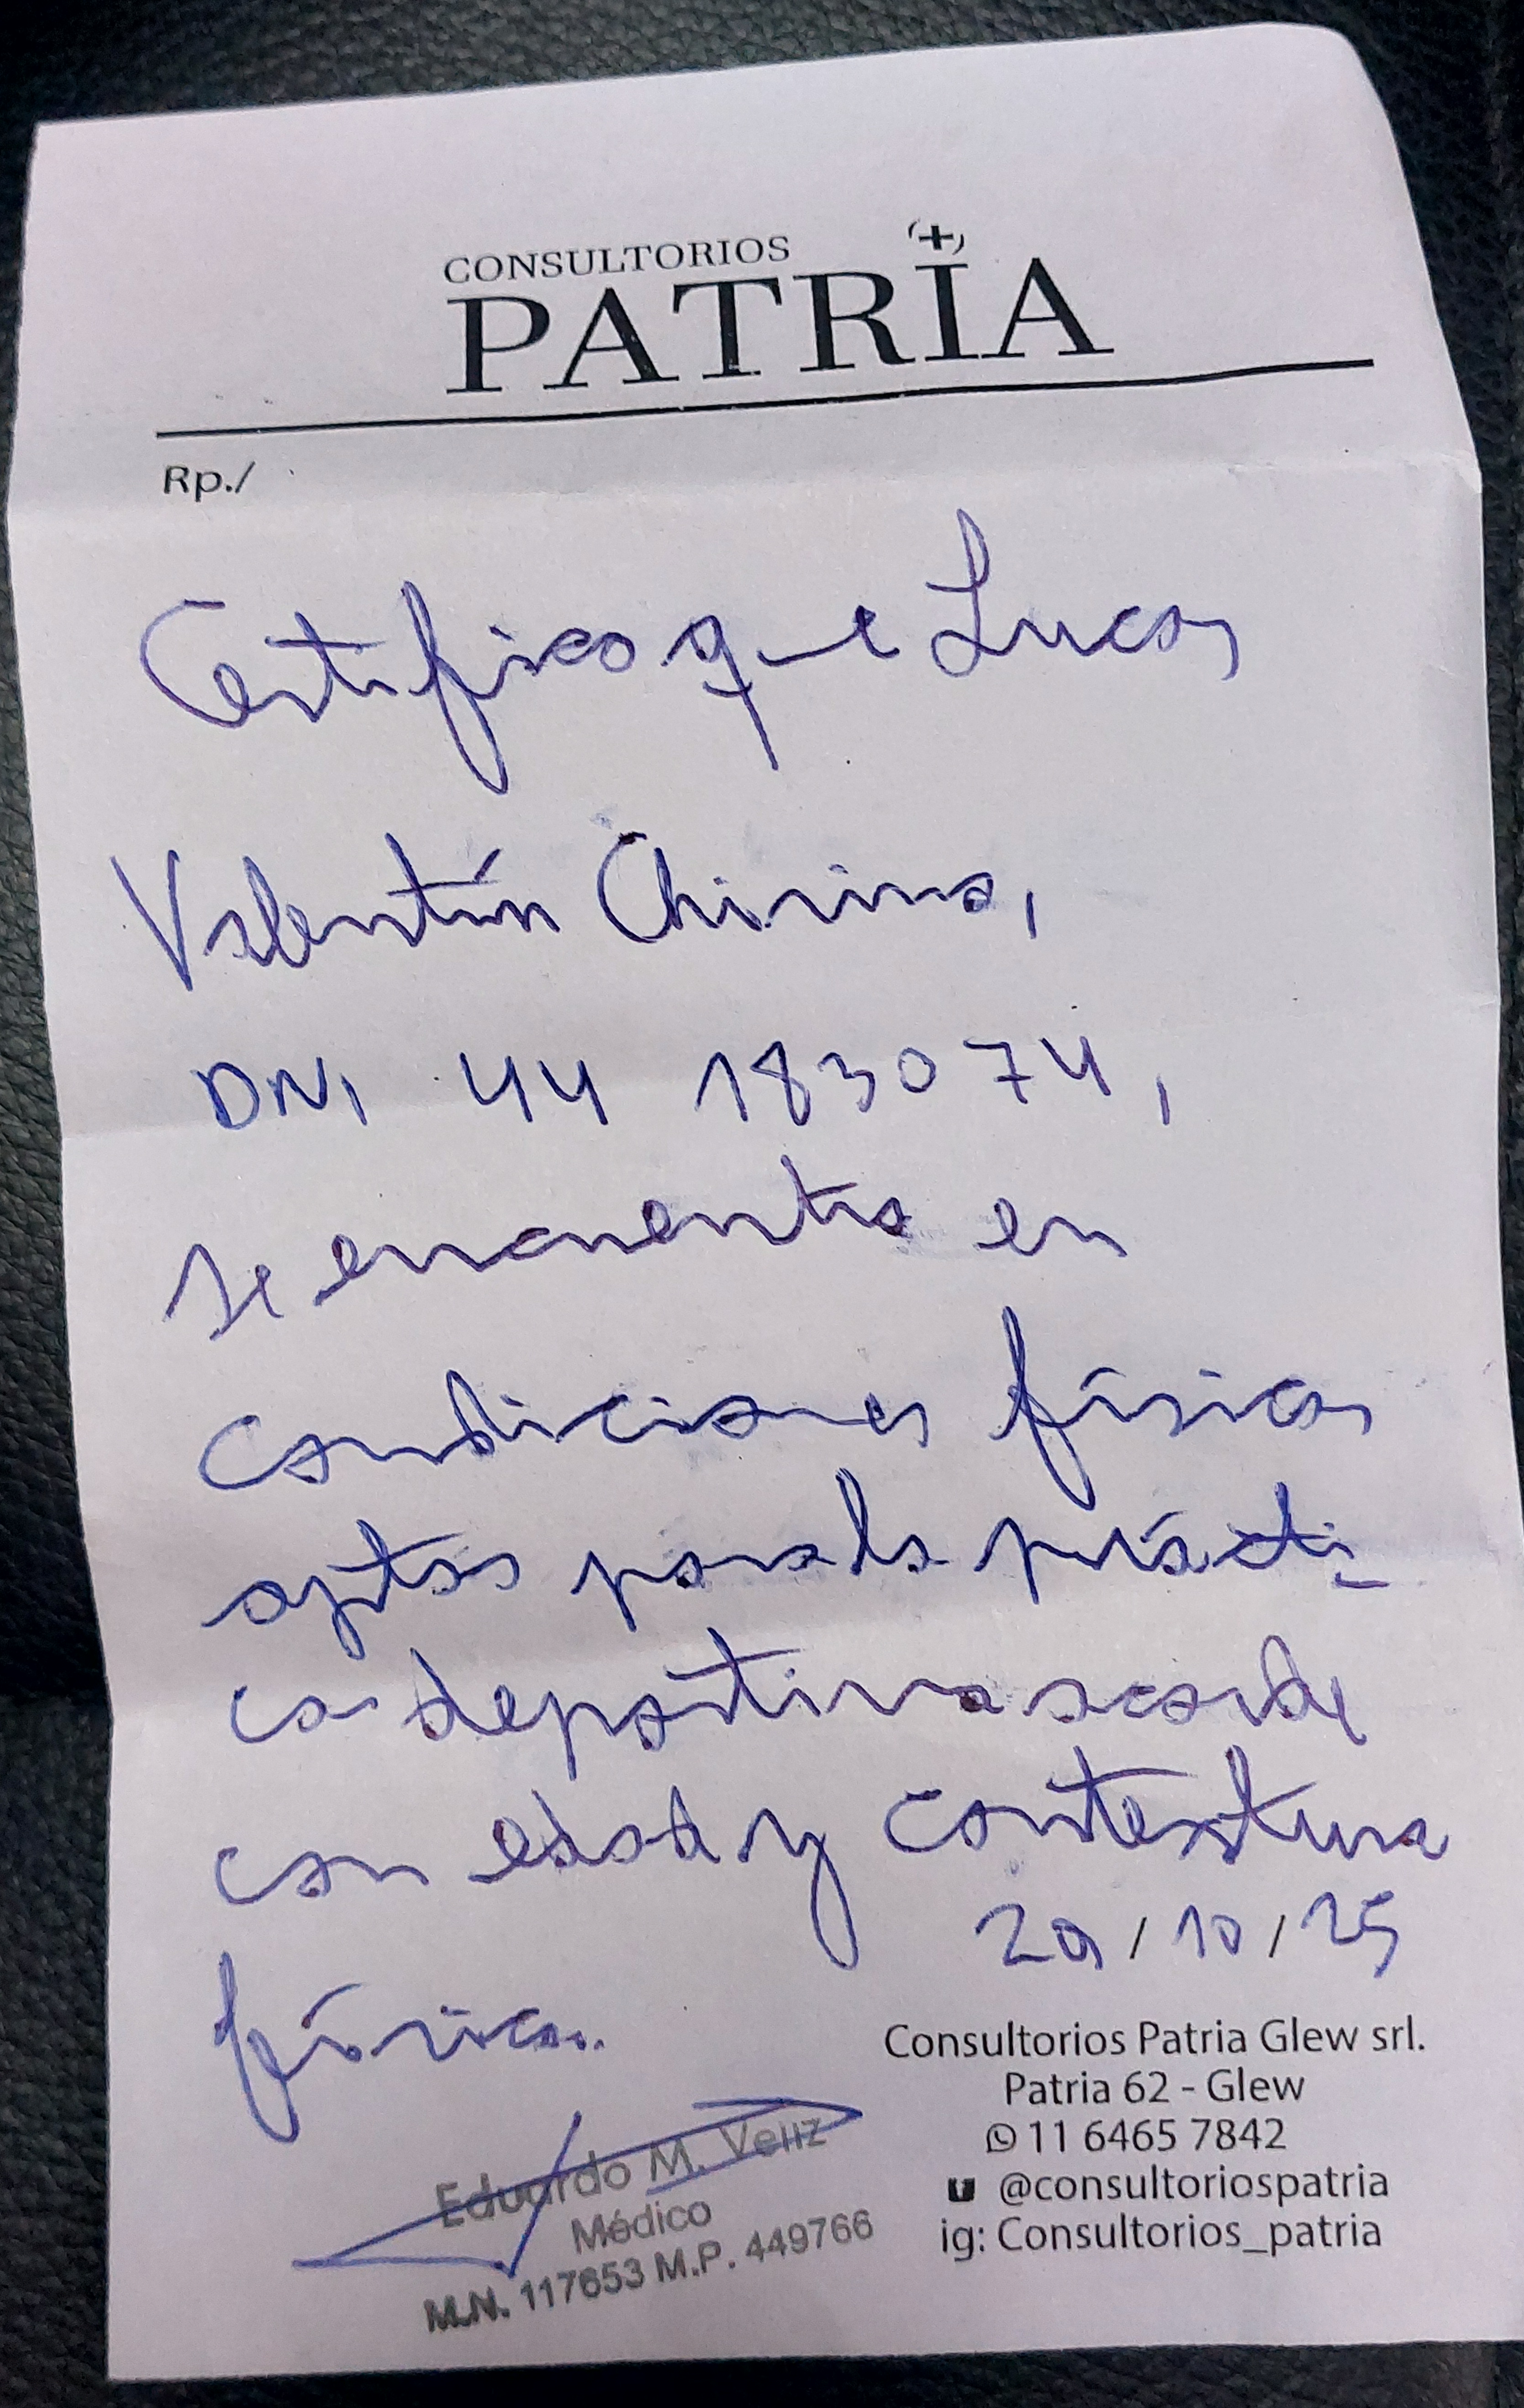 CONSULTORIOS
PATRIA
Rp./
Certifico que Lucas
Valentín Chirino,
DNI 44 183074,
se encuentra en
condiciones físicas
aptas para la prácti-
ca deportiva acorde
con edad y contextura
29/10/25
física.
Consultorios Patria Glew srl.
Patria 62 - Glew
11 6465 7842
@consultoriospatria
ig: Consultorios_patria
Eduardo M. Veliz
Médico
M.N. 117653 M.P. 449766